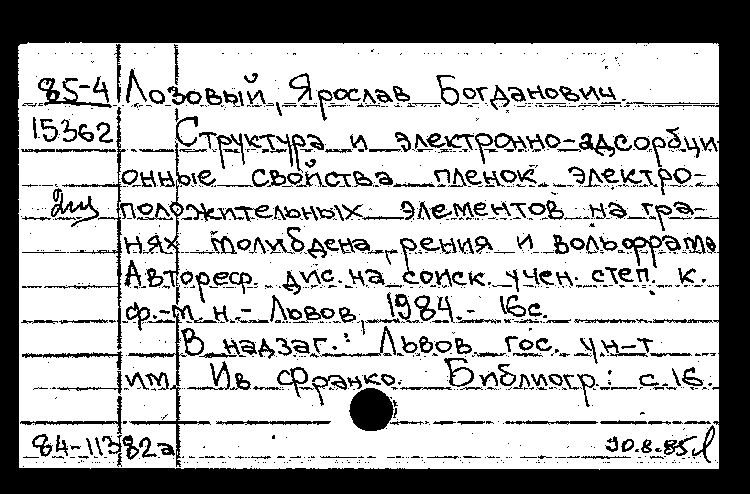 85-4 Лозовый, Ярослав Богданович.
15362 Структура и электронно-адсорбци
онные свойства пленок электро-
2щ положительных элементов на гра-
нях молибдена, рения и вольфрама
Автореф. дис. на соиск. учен. степ. к.
ф.-м. н. - Львов, 1984. - 16 с.
В надзаг.: Львов гос. ун-т
им. Ив. Франко. Библиогр.: с. 16.
84-11382а 90.8.85